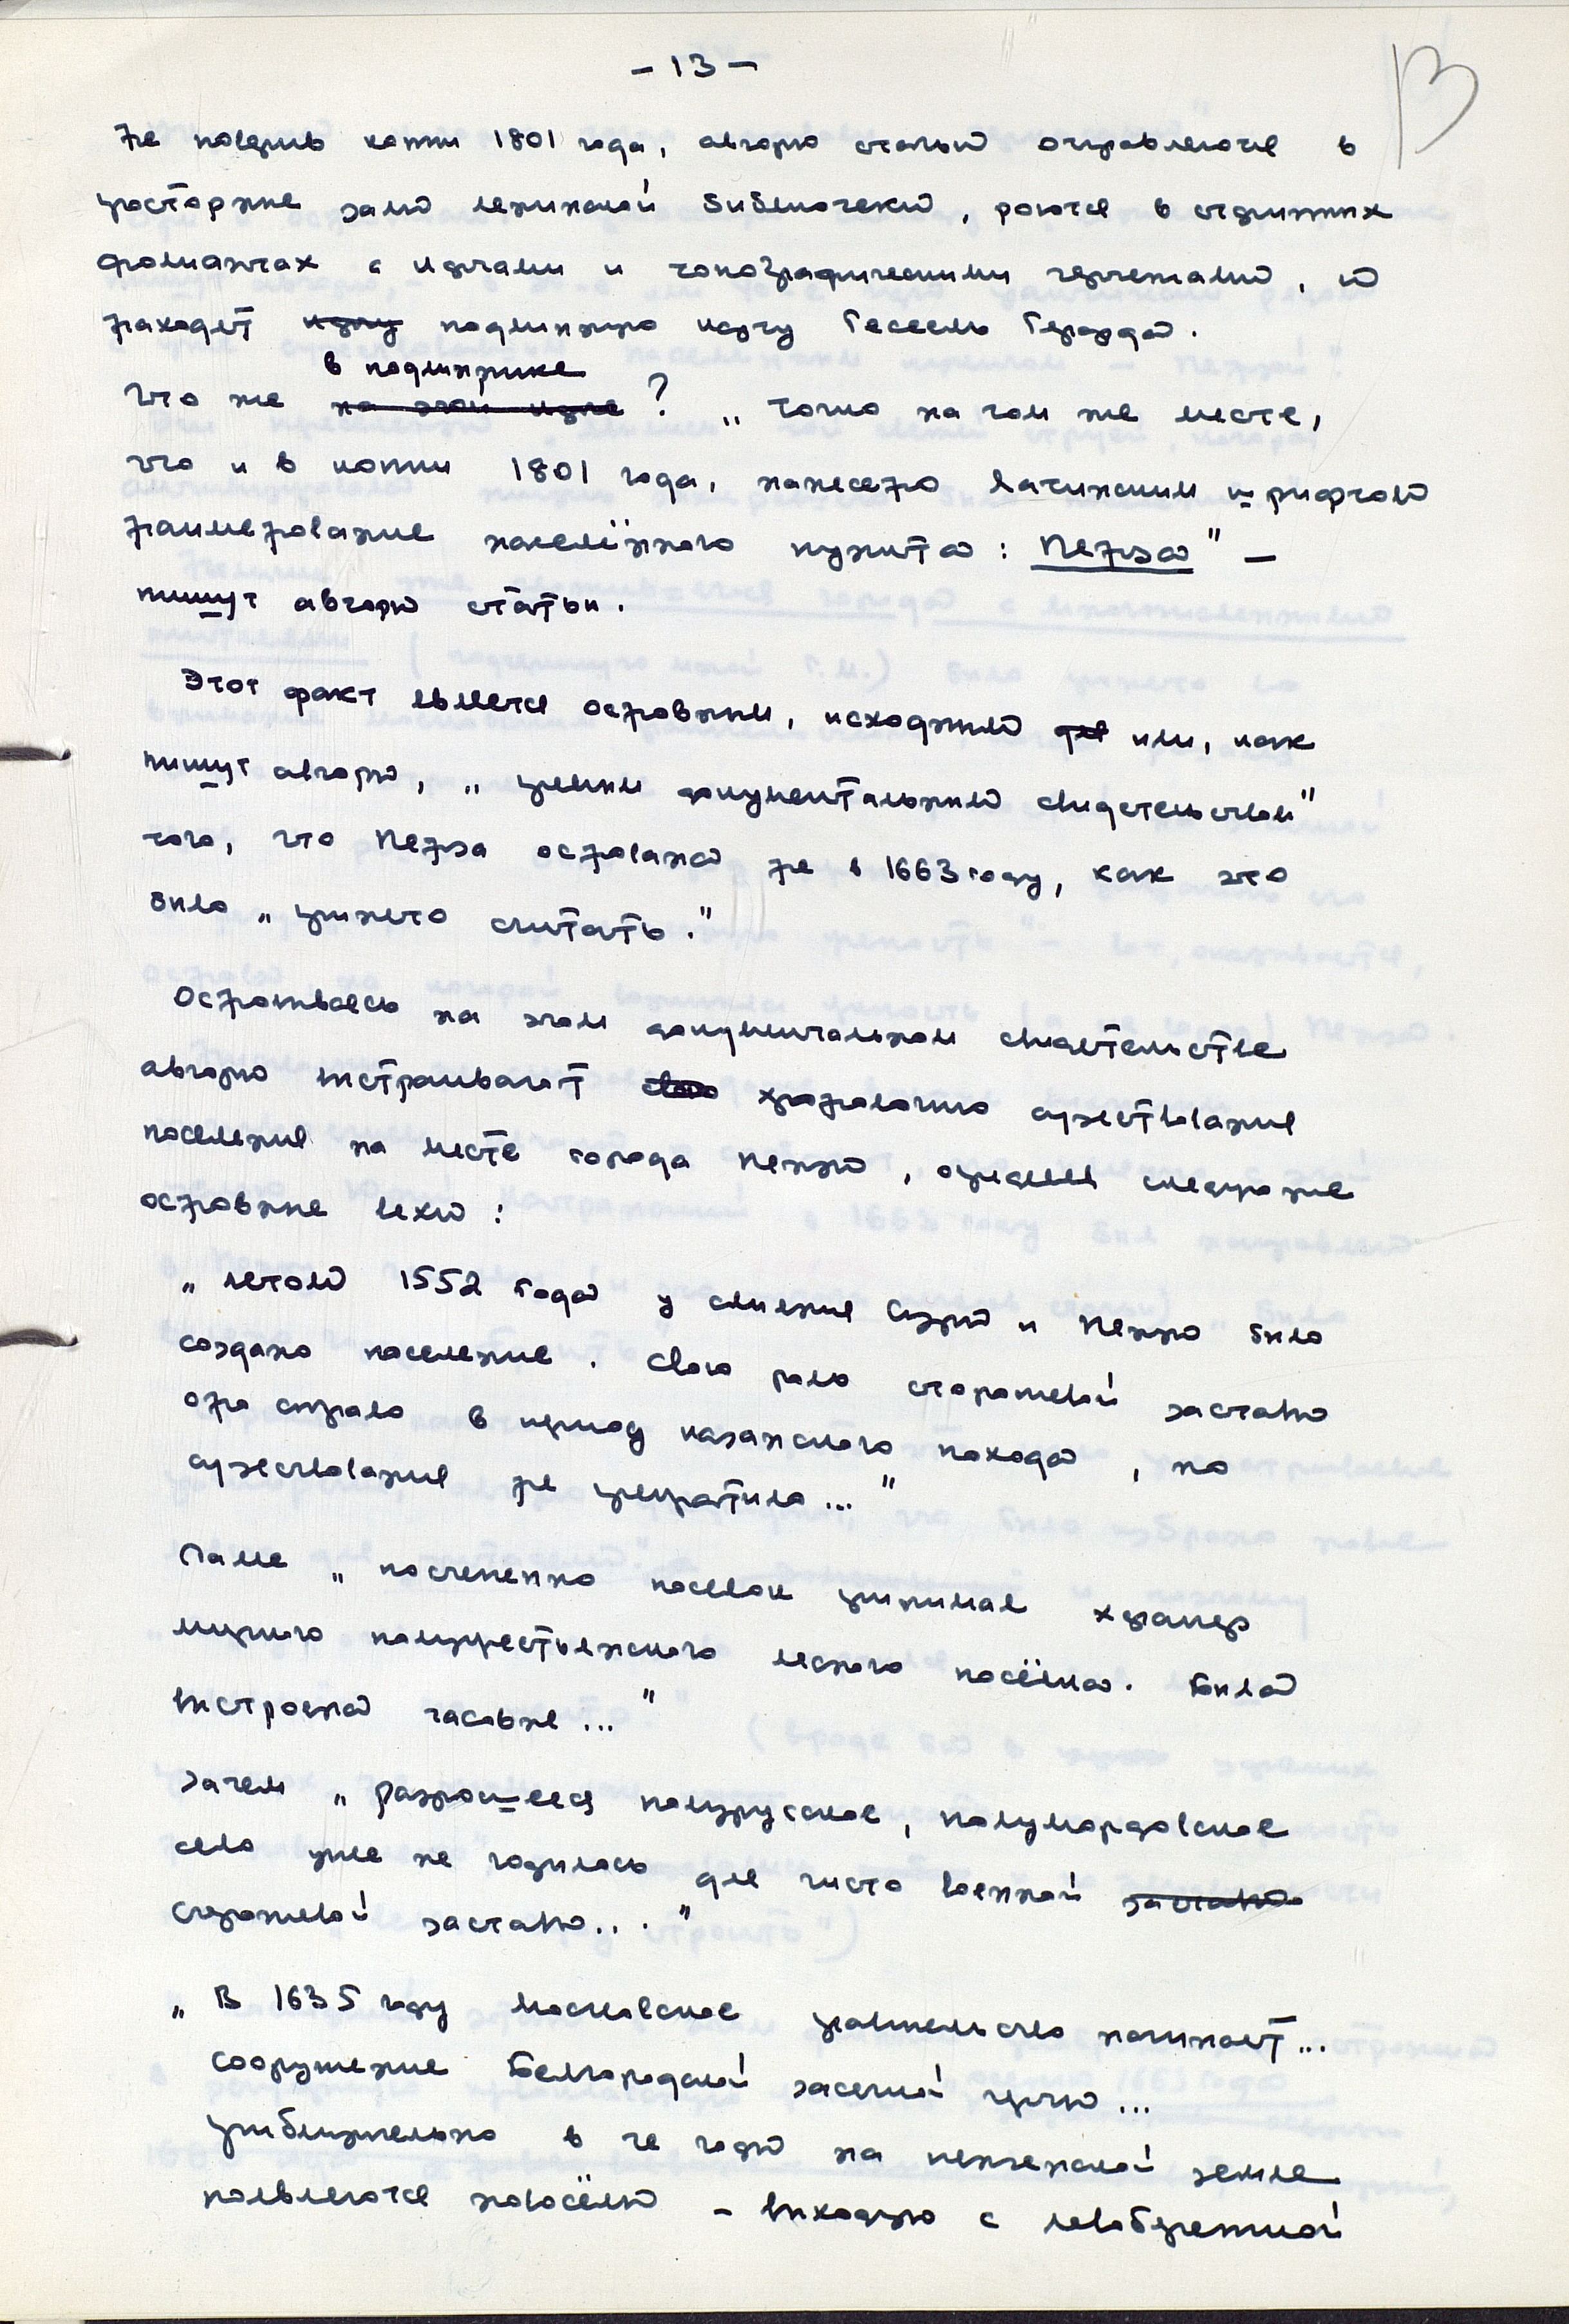 - 13 -
13
Не поверив копии 1801 года, авторы статьи отправляются в
просторные залы ленинской библиотеки, роются в старинных
фолиантах с картами и топографическими чертежами, и
находят карту подлинную карту Гесселя Герарда.
в подлиннике
Что же на этой карте? „Точно на том же месте,
что и в копии 1801 года, нанесено латинским шрифтом
наименование населённого пункта: Пенза" —
пишут авторы статьи.
Этот факт является основным, исходным для или, как
пишут авторы, „ценным документальным свидетельством"
того, что Пенза основана не в 1663 году, как это
было „принято считать."
Основываясь на этом документальном свидетельстве
авторы выстраивают свою хронологию существования
поселения на месте города Пензы, определяя следующие
основные вехи:
„Летом 1552 года у слияния Суры и Пензы было
создано поселение. Свою роль сторожевой заставы
оно сыграло в период казанского похода, но
существование не прекратило..."
Далее „постепенно поселок принимал характер
мирного полукрестьянского лесного посёлка. Была
выстроена часовня..."
Затем „разросшееся полурусское, полумордовское
село уже не годилось для чисто военной заставы
сторожевой заставы..."
„В 1635 году Московское правительство начинает...
сооружение Белгородской засечной черты...
Приблизительно в те годы на пензенской земле
появляются новосёлы - выходцы с левобережной